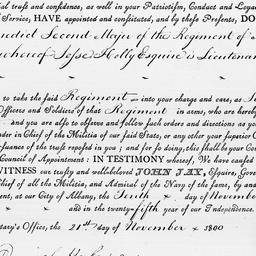 ial trust and confidence, as well in your Patriotism, Conduct and Loya
Service, HAVE appointed and constituted, and by these Presents, DO
nedict Second Major of the Regiment of
whereof Jesse Holly Esquire is Lieutenan
to take the said Regiment into your charge and care, as
Officers and Soldiers of that Regiment in arms, who are hereby
and you are also to observe and follow such orders and directions as yo
nder in Chief of the Militia of our said State, or any other your Superior O
rsuance of the trust reposed in you; and for so doing, this shall be your Com
Council of Appointment: IN TESTIMONY whereof, We have caused
WITNESS our trusty and well-beloved JOHN JAY, Esquire, Gover
Chief of all the Militia, and Admiral of the Navy of the same, by and
ent, at our City of Albany, the Tenth day of November
and in the twenty-fifth year of our Independence.
tary's Office, the 21st day of November 1800